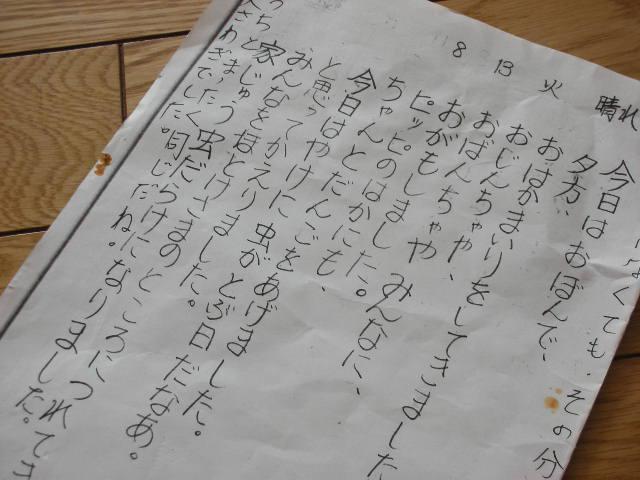 8 13 火 晴れ
くても、その分
今日はおぼんで、
夕方、
おはかまいりをしてきました
おじんちゃや、
おばんちゃや、みんなに、
おがもしました。
ピッピのはかにも、
ちゃんとだんごをあげました。
今日はやけに虫がとぶ日だなあ。
と思ってかえりました。
みんなをほとけさまのところにつれてき
家じゅう虫だらけになりました。
まったく同じだね。
さわぎでした。